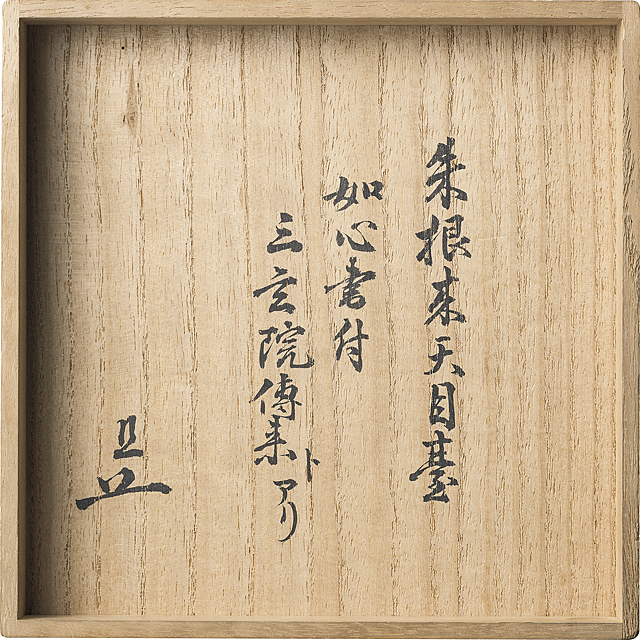 朱根来天目臺
如心書付
三玄院傳来トアリ